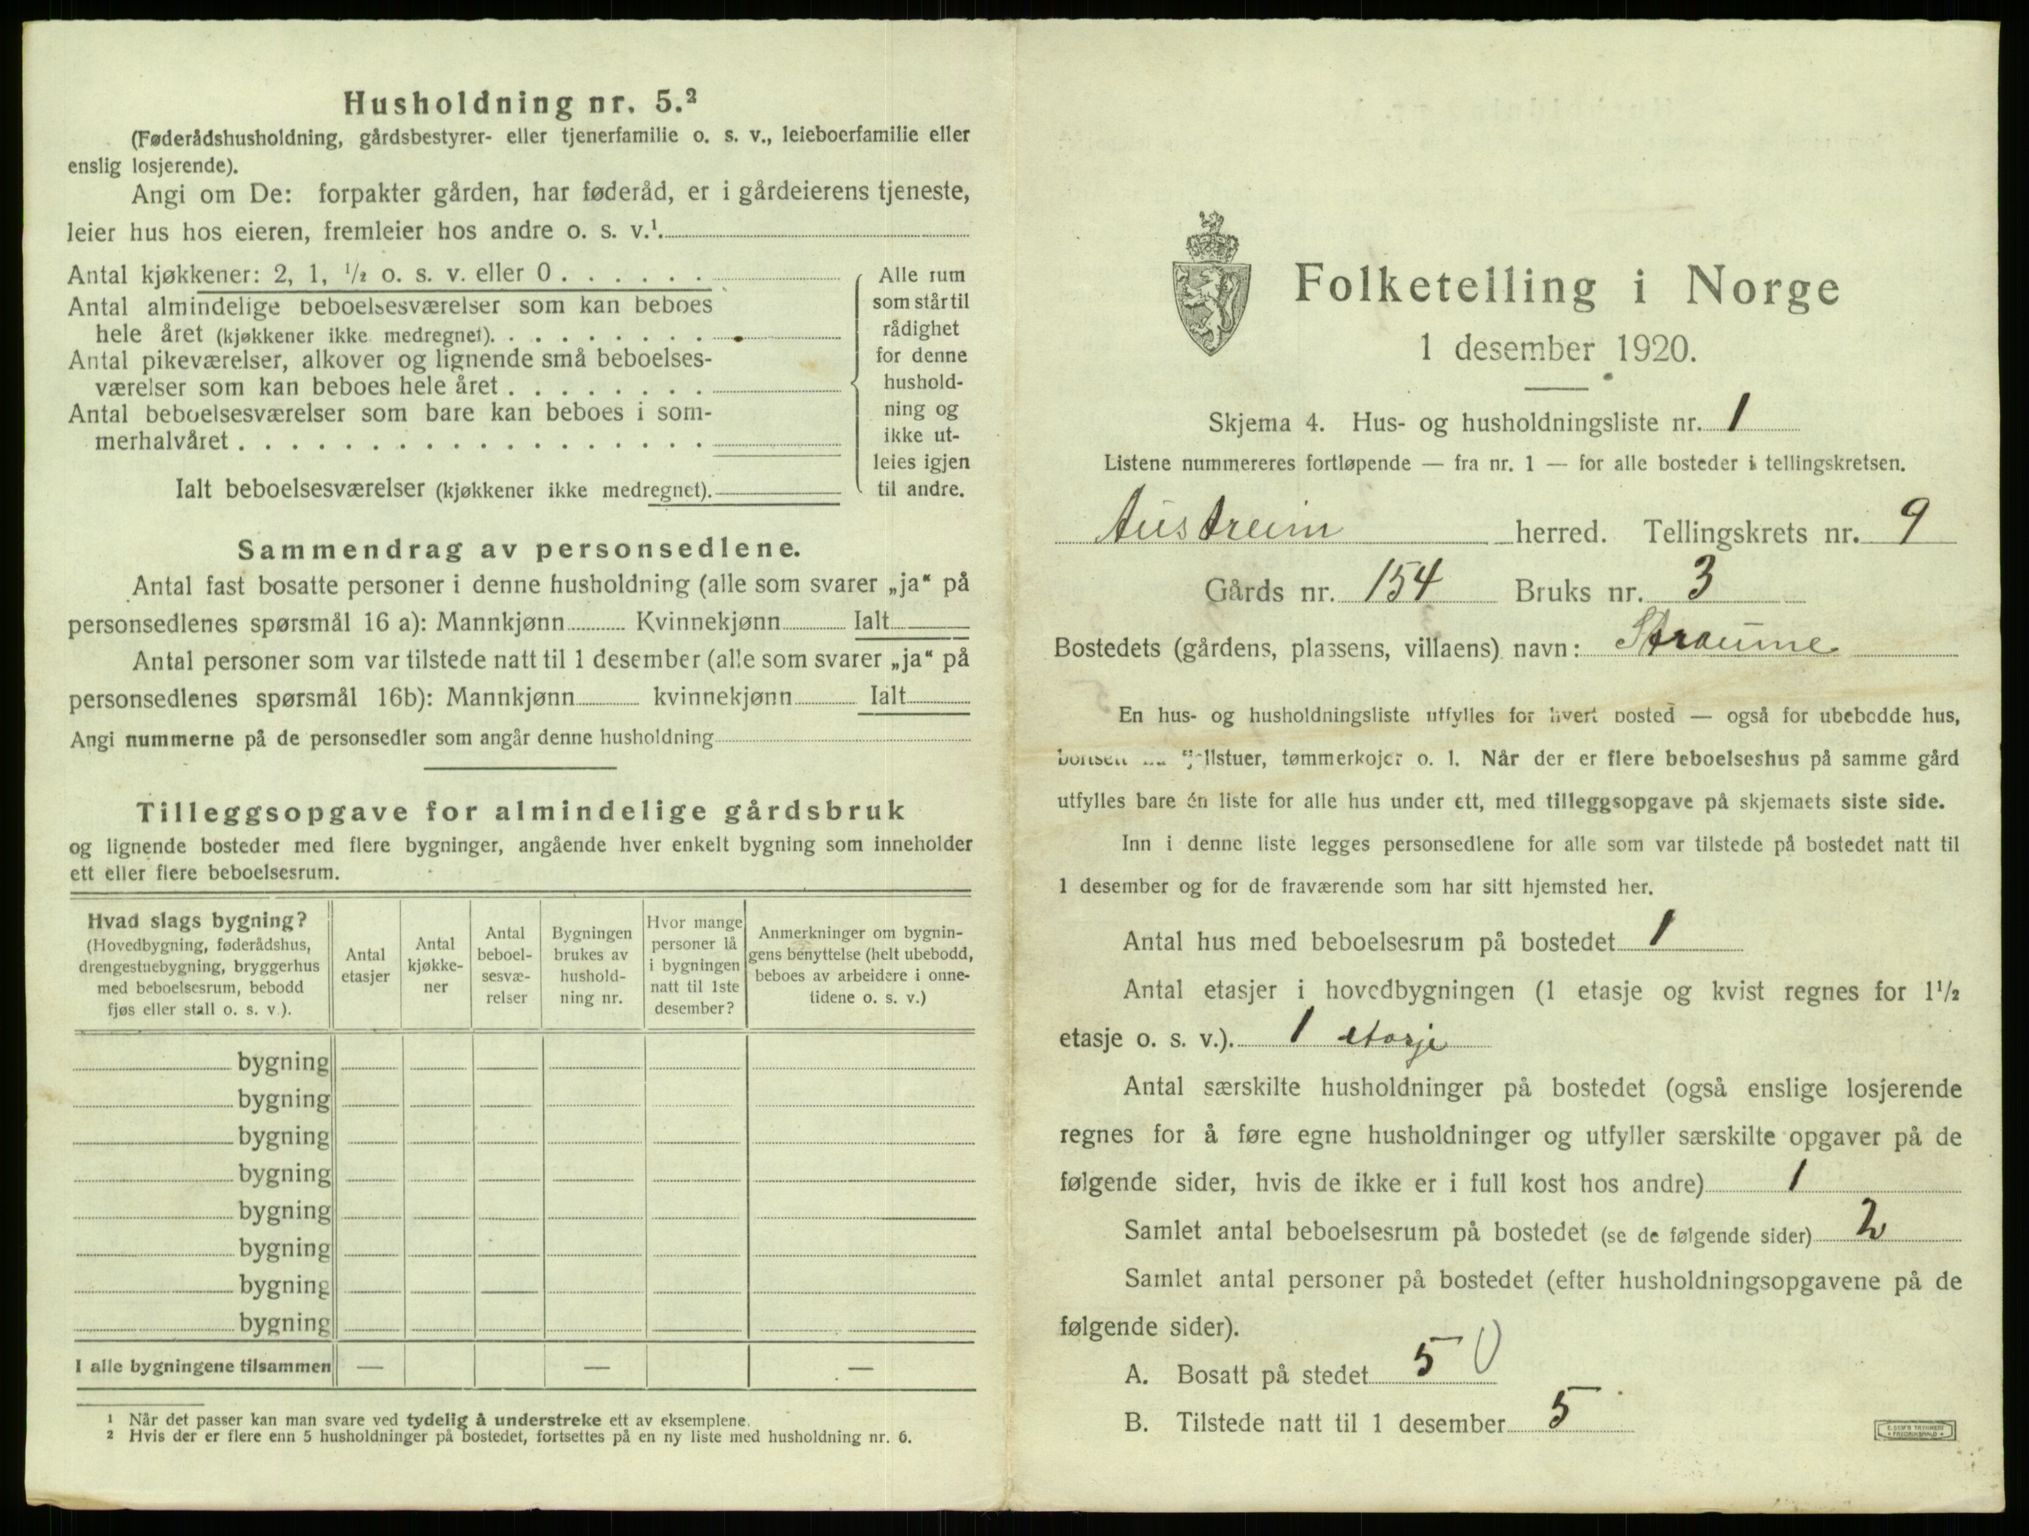 Husholdning nr. 5.²
(Føderådshusholdning, gårdsbestyrer- eller tjenerfamilie o. s. v., leieboerfamilie eller
enslig losjerende).
Angi om De: forpakter gården, har føderåd, er i gårdeierens tjeneste,
leier hus hos eieren, fremleier hos andre o. s. v.¹.
Antal kjøkkener: 2, 1, ½ o. s. v. eller 0 . . . . . .
Antal almindelige beboelsesværelser som kan beboes
hele året (kjøkkener ikke medregnet). . . . . . . . .
Antal pikeværelser, alkover og lignende små beboelses-
værelser som kan beboes hele året . . . . . . . .
Antal beboelsesværelser som bare kan beboes i som-
merhalvåret . . . . . . . . . . . . . . . . . .
Ialt beboelsesværelser (kjøkkener ikke medregnet).
Alle rum
som står til
rådighet
for denne
hushold-
ning og
ikke ut-
leies igjen
til andre.
Sammendrag av personsedlene.
Antal fast bosatte personer i denne husholdning (alle som svarer „ja“ på
personsedlenes spørsmål 16 a): Mannkjønn Kvinnekjønn Ialt
Antal personer som var tilstede natt til 1 desember (alle som svarer „ja“ på
personsedlenes spørsmål 16b): Mannkjønn kvinnekjønn Ialt
Angi nummerne på de personsedler som angår denne husholdning
Tilleggsopgave for almindelige gårdsbruk
og lignende bosteder med flere bygninger, angående hver enkelt bygning som inneholder
ett eller flere beboelsesrum.
Hvad slags bygning?
(Hovedbygning, føderådshus,
drengestuebygning, bryggerhus
med beboelsesrum, bebodd
fjøs eller stall o. s. v.).
Antal
etasjer
Antal
kjøkke-
ner
Antal
beboel-
sesvæ-
relser
Bygningen
brukes av
hushold-
ning nr.
Hvor mange
personer lå
i bygningen
natt til 1ste
desember?
Anmerkninger om bygnin-
gens benyttelse (helt ubebodd,
beboes av arbeidere i onne-
tidene o. s. v.)
bygning
bygning
bygning
bygning
bygning
bygning
bygning
bygning
I alle bygningene tilsammen — — —
¹ Når det passer kan man svare ved tydelig å understreke ett av eksemplene.
² Hvis der er flere enn 5 husholdninger på bostedet, fortsettes på en ny liste med husholdning nr. 6.
Folketelling i Norge
1 desember 1920.
Skjema 4. Hus- og husholdningsliste nr. 1
Listene nummereres fortløpende — fra nr. 1 — for alle bosteder i tellingskretsen.
Austreim herred. Tellingskrets nr. 9
Gårds nr. 154 Bruks nr. 3
Bostedets (gårdens, plassens, villaens) navn: Straume
En hus- og husholdningsliste utfylles for hvert bosted — også for ubebodde hus,
bortsett fra fjellstuer, tømmerkojer o. l. Når der er flere beboelseshus på samme gård
utfylles bare én liste for alle hus under ett, med tilleggsopgave på skjemaets siste side.
Inn i denne liste legges personsedlene for alle som var tilstede på bostedet natt til
1 desember og for de fraværende som har sitt hjemsted her.
Antal hus med beboelsesrum på bostedet 1
Antal etasjer i hovedbygningen (1 etasje og kvist regnes for 1½
etasje o. s. v.). 1 etasje
Antal særskilte husholdninger på bostedet (også enslige losjerende
regnes for å føre egne husholdninger og utfyller særskilte opgaver på de
følgende sider, hvis de ikke er i full kost hos andre) 1
Samlet antal beboelsesrum på bostedet (se de følgende sider) 2
Samlet antal personer på bostedet (efter husholdningsopgavene på de
følgende sider).
A. Bosatt på stedet 5
B. Tilstede natt til 1 desember 5